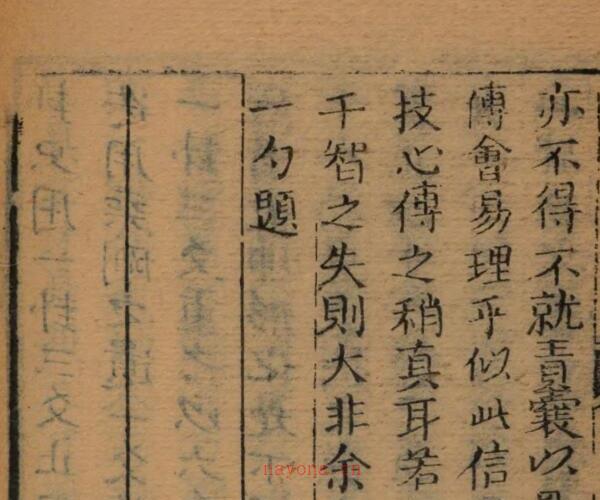 亦不得不就青囊以
傅會易理乎似此信
技心傳之稍真耳若
千智之失則大非余
一勺題
nayona.cn